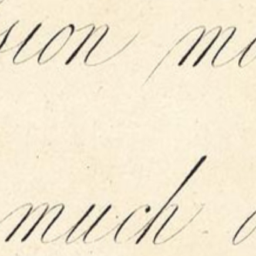 sion mi
much